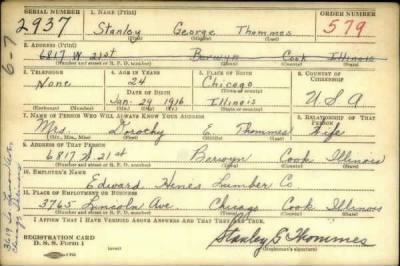 SERIAL NUMBER
1. NAME (Print)
ORDER NUMBER
2937
Stanley George Thommes
579
(First) (Middle) (Last)
2. ADDRESS (Print)
6817 W 21st Berwyn Cook Illinois
(Number and street or R. F. D. number) (Town) (County) (State)
3. TELEPHONE
4. AGE IN YEARS
5. PLACE OF BIRTH
6. COUNTRY OF CITIZENSHIP
None
24
Chicago
DATE OF BIRTH
(Town or county)
Jan. 29 1916
Illinois
U S A
(Exchange) (Number)
(Mo.) (Day) (Yr.)
(State or country)
7. NAME OF PERSON WHO WILL ALWAYS KNOW YOUR ADDRESS
8. RELATIONSHIP OF THAT PERSON
Mrs. Dorothy E. Thommes
Wife
(Mr., Mrs., Miss) (First) (Middle) (Last)
9. ADDRESS OF THAT PERSON
6817 W 21st Berwyn Cook Illinois
(Number and street or R. F. D. number) (Town) (County) (State)
10. EMPLOYER'S NAME
Edward Hines Lumber Co
11. PLACE OF EMPLOYMENT OR BUSINESS
3765 Lincoln Ave Chicago Cook Illinois
(Number and street or R. F. D. number) (Town) (County) (State)
I AFFIRM THAT I HAVE VERIFIED ABOVE ANSWERS AND THAT THEY ARE TRUE.
REGISTRATION CARD
D. S. S. Form 1
Stanley G Thommes
(Registrant's signature)
6-7
3619 So